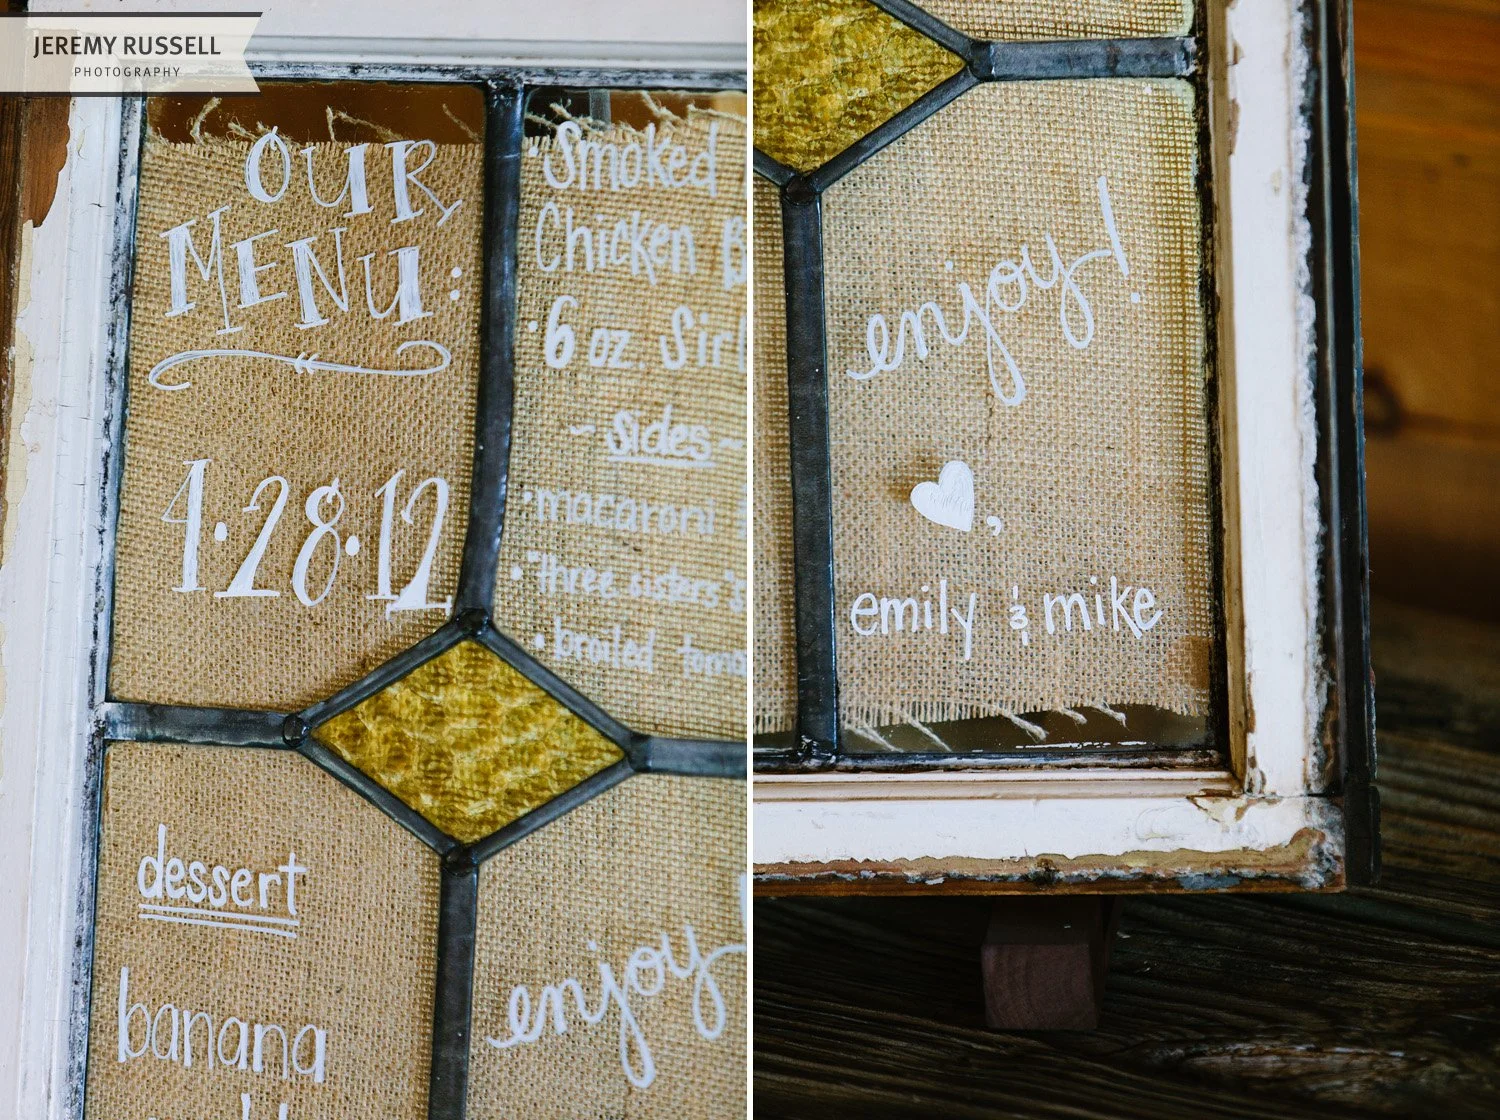 JEREMY RUSSELL
PHOTOGRAPHY
OUR
MENU:
4·28·12
• Smoked
Chicken
• 6 oz.
~ sides ~
• macaroni
• three sisters's
• broiled
dessert
banana
enjoy
enjoy!
♥,
emily & mike